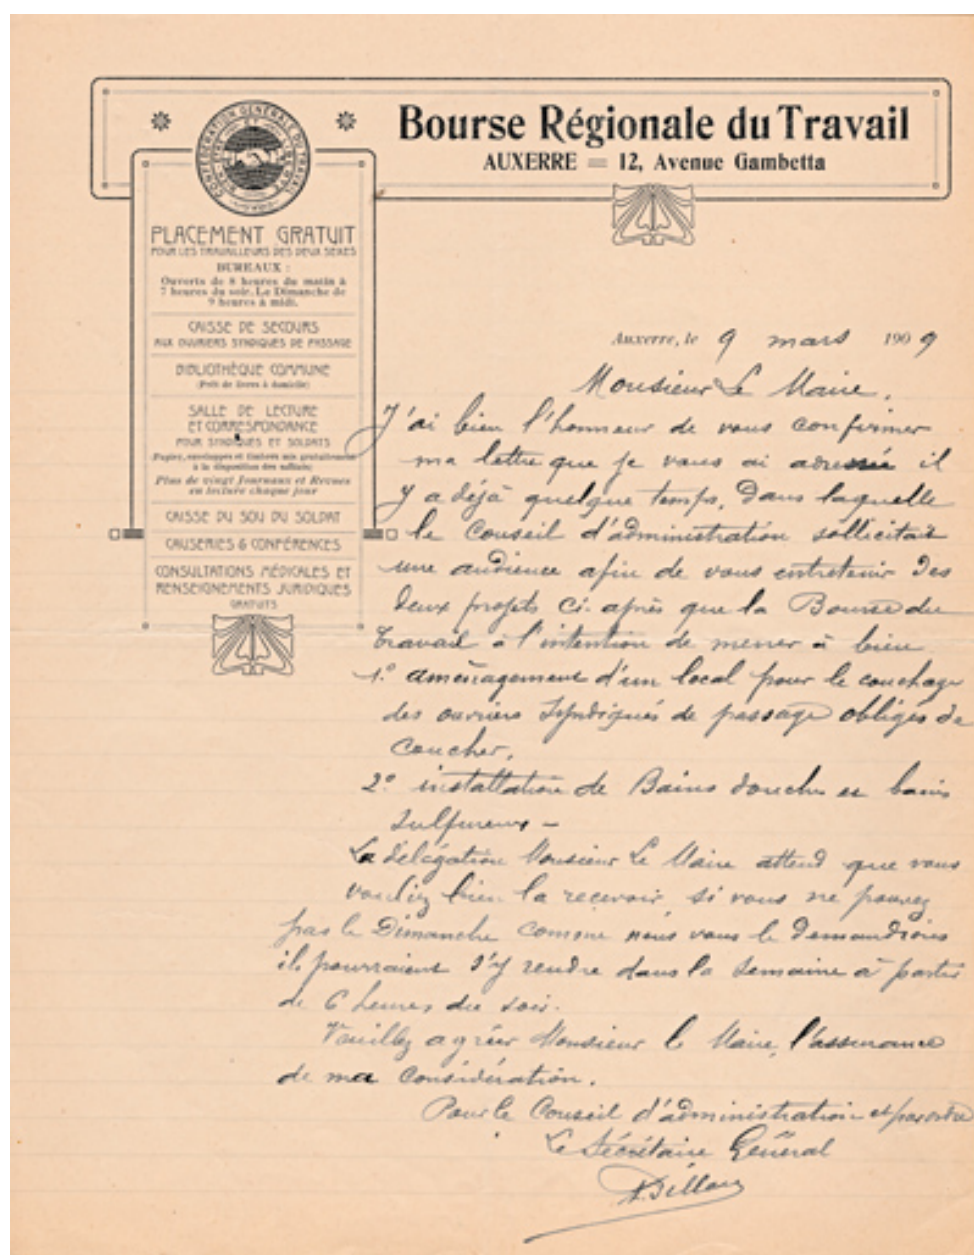 Bourse Régionale du Travail
AUXERRE = 12, Avenue Gambetta
CONFÉDÉRATION GÉNÉRALE DU TRAVAIL
PLACEMENT GRATUIT
POUR LES TRAVAILLEURS DES DEUX SEXES
BUREAUX :
Ouverts de 8 heures du matin à
7 heures du soir. Le Dimanche de
9 heures à midi.
CAISSE DE SECOURS
AUX OUVRIERS SYNDIQUÉS DE PASSAGE
BIBLIOTHÈQUE COMMUNE
(Prêt de livres à domicile)
SALLE DE LECTURE
ET CORRESPONDANCE
POUR SYNDIQUÉS ET SOLDATS
(Papier, enveloppes et timbres mis gratuitement
à la disposition des soldats)
Plus de vingt Journaux et Revues
en lecture chaque jour
CAISSE DU SOU DU SOLDAT
CAUSERIES & CONFÉRENCES
CONSULTATIONS MÉDICALES ET
RENSEIGNEMENTS JURIDIQUES
GRATUITS
Auxerre, le 9 mars 1909
Monsieur Le Maire,
J'ai bien l'honneur de vous confirmer
ma lettre que je vous ai adressée il
y a déjà quelque temps, Dans laquelle
le Conseil d'administration sollicitait
une audience afin de vous entretenir Des
Deux projets Ci-après que la Bourse du
Travail à l'intention de mener à bien
1.° aménagement d'un local pour le couchage
des ouvriers Syndiqués de passage obligés de
coucher,
2.° installation de Bains douches et bains
Sulfureux -
La délégation Monsieur Le Maire attend que vous
vouliez bien la recevoir, si vous ne pouvez
pas le Dimanche comme nous vous le Demandions
ils pourraient s'y rendre dans la Semaine à partir
de 6 heures du soir.
Veuillez agréer Monsieur le Maire, l'assurance
de ma Considération.
Pour le Conseil d'administration et par ordre
Le Sécrétaire Général